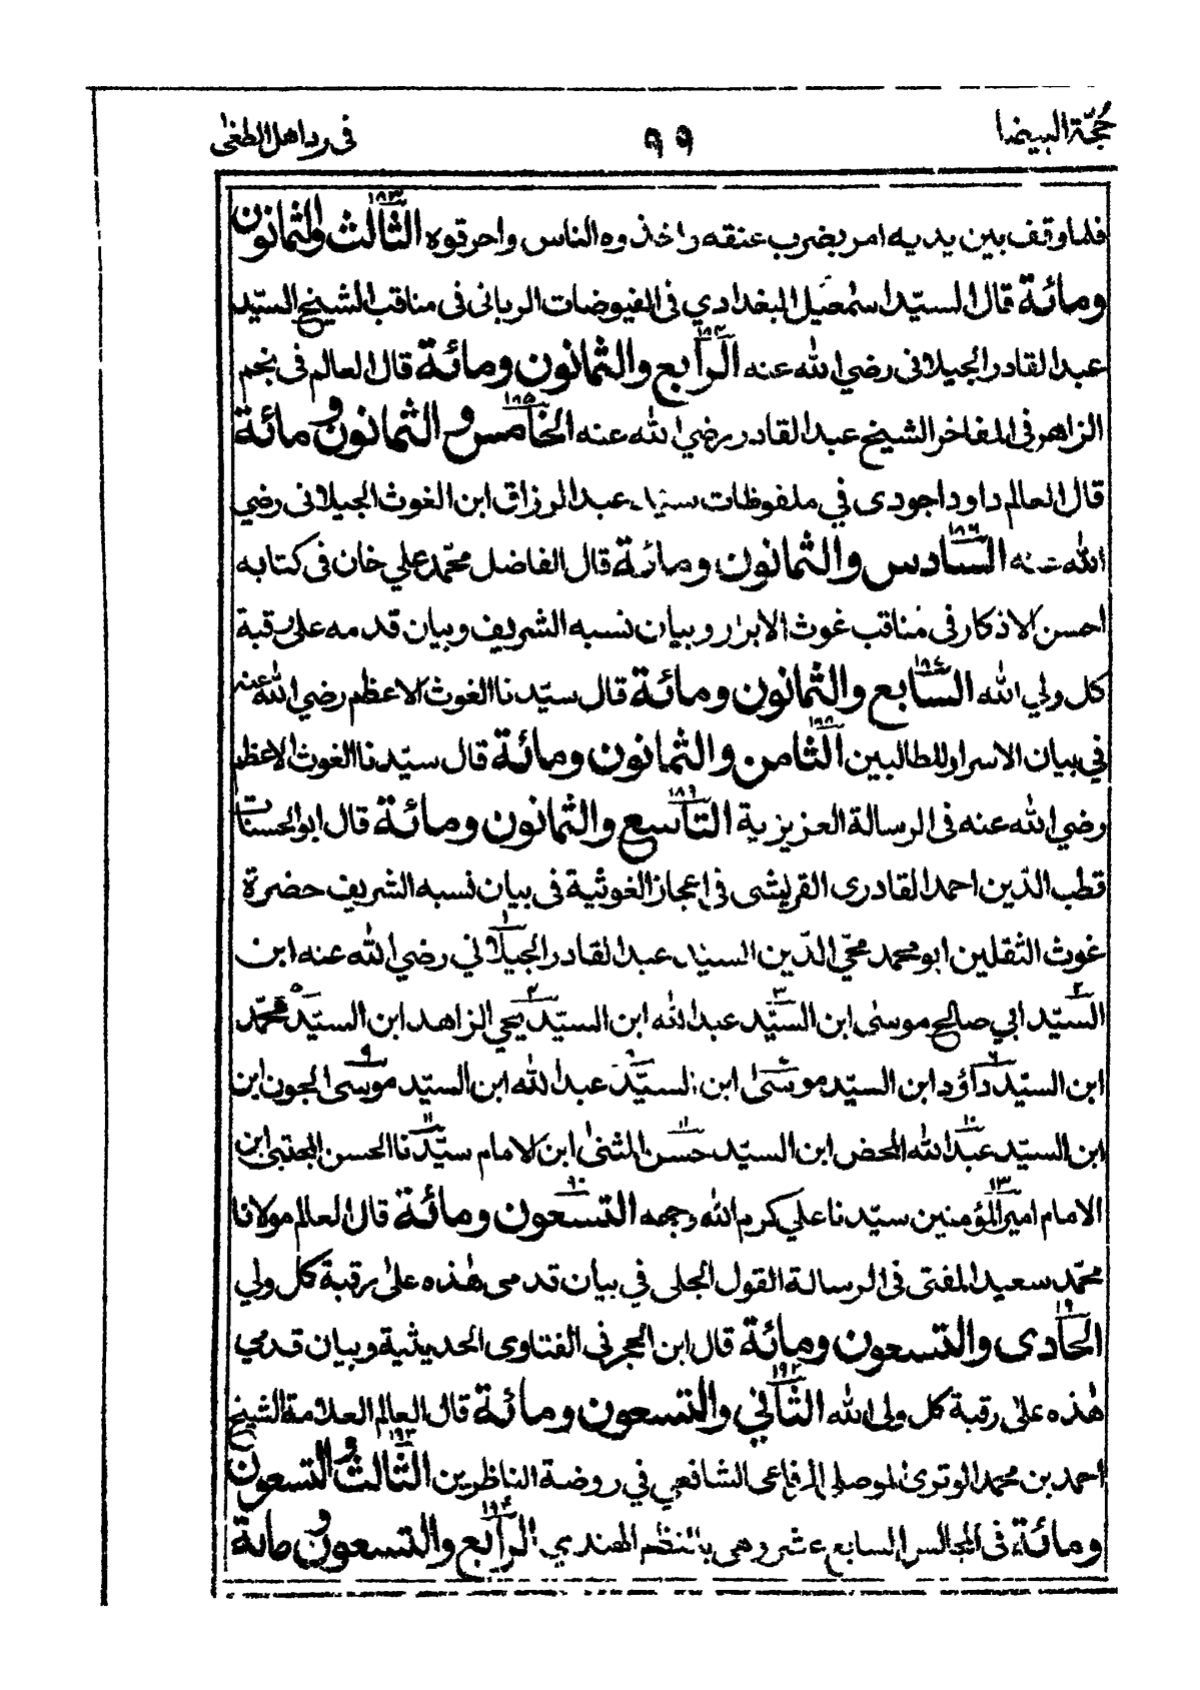 حُجّة البيضا ٩٩ فى رد اهل الطغٰى
فلما وقف بين يديه امر بضرب عنقه واخذوه الناس واحرقوه الثّالث والثمانون ١٨٣
ومائة قال السيّد اسمٰعيل البغدادي فى الفيوضات الربانى فى مناقب الشيخ السيّد
عبد القادر الجيلانى رضي الله عنه الرّابع والثمانون ومائة ١٨٤ قال العالم فى نجم
الزاهر فى المفاخر الشيخ عبد القادر رضي الله عنه الخامس والثمانون ومائة ١٨٥
قال العالم داود اجودى في ملفوظات سيّد عبد الرزاق ابن الغوث الجيلانى رضي
الله عنه السّادس والثمانون ومائة ١٨٦ قال الفاضل محمّد علي خان فى كتابه
احسن الاذكار فى مناقب غوث الابرار وبيان نسبه الشريف وبيان قدمه على رقبة
كل ولي الله السّابع والثمانون ومائة ١٨٧ قال سيّدنا الغوث الاعظم رضي الله عنه
في بيان الاسرار للطالبين الثامن والثمانون ومائة ١٨٨ قال سيّدنا الغوث الاعظم
رضي الله عنه فى الرسالة العزيزية التاسع والثمانون ومائة ١٨٩ قال ابو الحسنات
قطب الدّين احمد القادرى القريشى فى اعجاز الغوثية فى بيان نسبه الشريف حضرة
غوث الثقلين ابو محمد محيّ الدّين السيّد عبد القادر الجيلاني ١ رضي الله عنه ابن
السيّد ٢ ابي صالح موسىٰ ابن السيّد ٣ عبد الله ابن السيّد ٤ يحيي الزاهد ابن السيّد ٥ محمّد
ابن السيّد ٦ داؤد ابن السيّد موسىٰ ٧ ابن السيّد ٨ عبد الله ابن السيّد موسىٰ ٩ الجون ابن
ابن السيّد عبد الله ١٠ المحض ابن السيّد حسن ١١ المثنىٰ ابن الامام سيّدنا ١٢ الحسن المجتبىٰ ابن
الامام امير المؤمنين ١٣ سيّدنا علي كرم الله وجهه التسعون ومائة ٩٠ قال العالم مولانا
محمّد سعيد المفتى فى الرسالة القول الجلى في بيان قدمى هٰذه علىٰ رقبة كل ولي
الحادى والتسعون ومائة ١٩١ قال ابن الحجر فى الفتاوى الحديثية وبيان قدمي
هٰذه علىٰ رقبة كل ولى الله الثّانى والتسعون ومائة ١٩٢ قال العالم العلامة الشيخ
احمد بن محمد الوترى الموصلى الرفاعى الشافعي في روضة الناظرين الثّالث والتسعون ١٩٣
ومائة فى المجالس السابع عشر وهى بالنظم الهندي الرّابع والتسعون ومائة ١٩٤